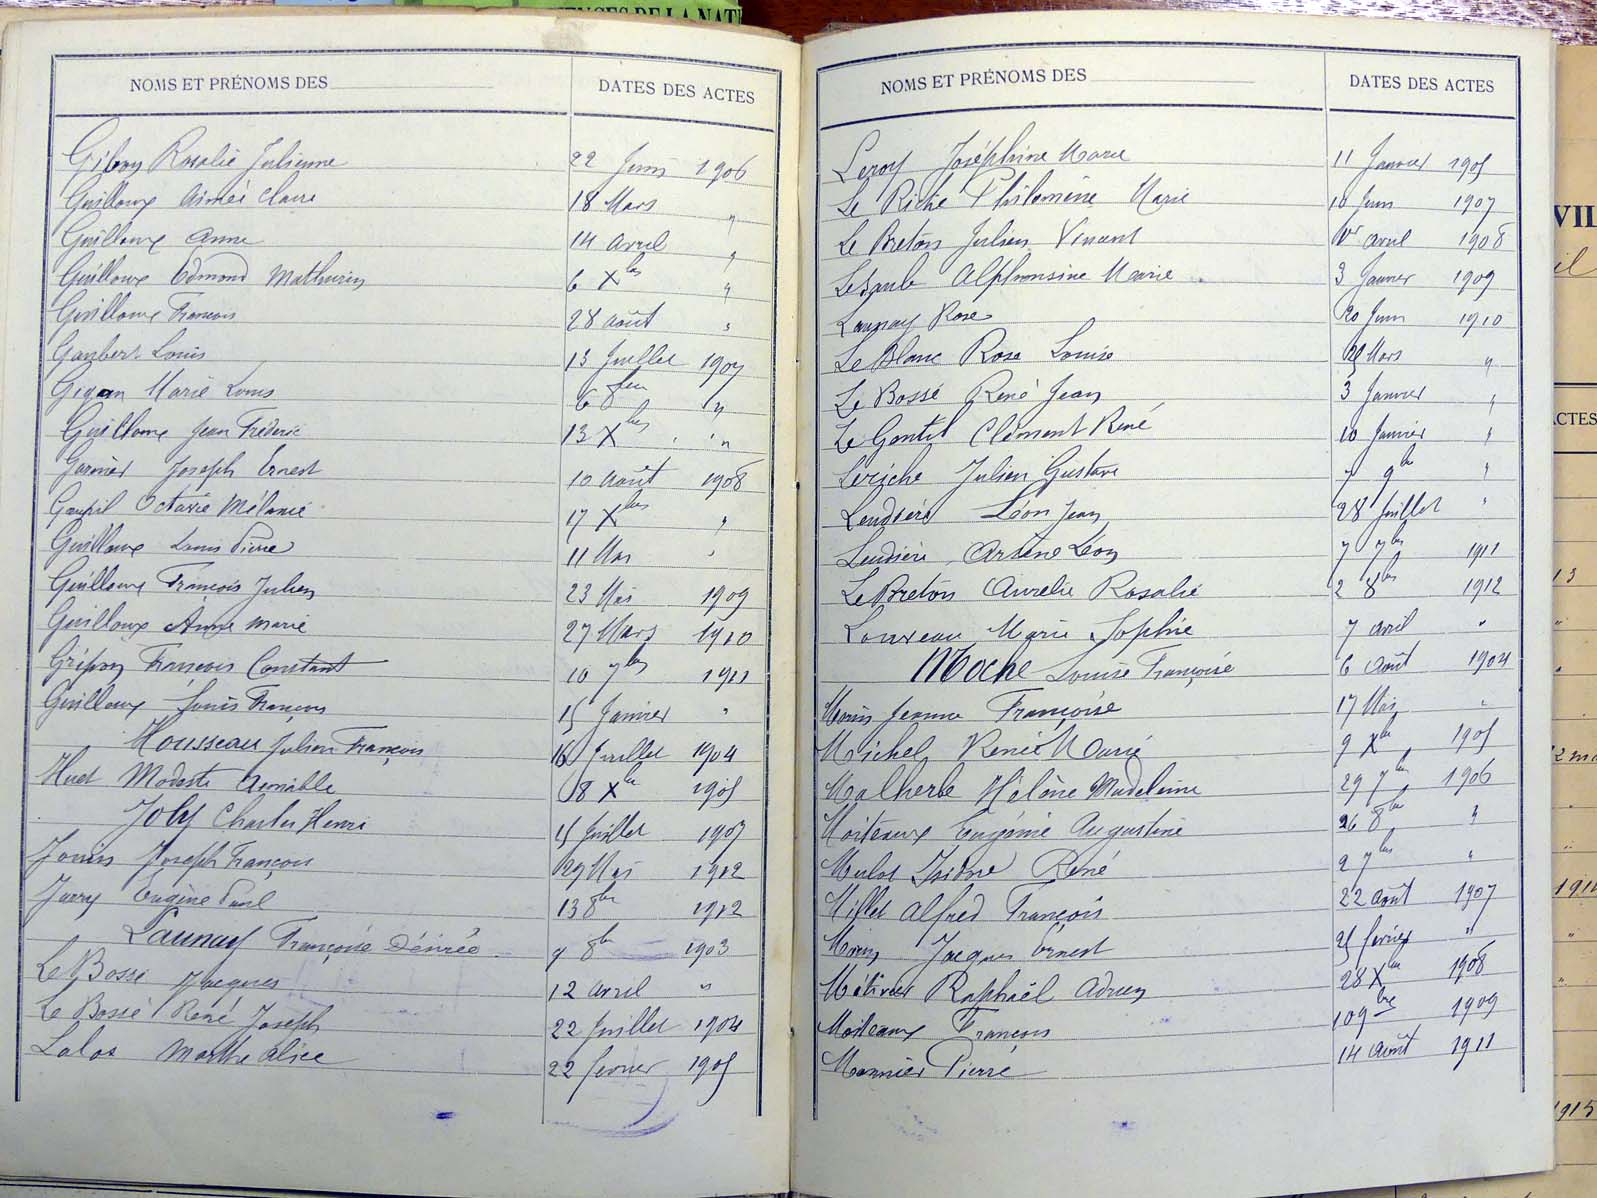 NCES DE LA NAT
NOMS ET PRÉNOMS DES DATES DES ACTES
Gibon Rosalie Julienne 22 Juin 1906
Guilloux Aimée Claire 18 Mars "
Guilloux Anne 14 Avril "
Guilloux Edmond Mathurin 6 Xbre "
Guilloux François 28 Août "
Gaubert Louis 13 Juillet 1907
Marie Louis 6 "
Guilloux Jean Frédéric 13 Xbre "
Garnier Joseph Ernest 10 Août 1908
Goupil Octavie Mélanie 17 Xbre "
Guilloux Louis Pierre 11 Mai "
Guilloux François Julien 23 Mai 1909
Guilloux Anne Marie 27 Mars 1910
Gripon François Constant 10 7bre 1911
Guilloux Louis François 15 Janvier "
Housseau Julien François 16 Juillet 1904
Huet Modeste Aimable 18 Xbre 1905
Joly Charles Henri 15 Juillet 1907
Jouin Joseph François 29 Mai 1912
Jarry Eugène Paul 13 8bre 1912
Launay Françoise Désirée 9 8bre 1903
Le Bossé Jacques 12 Avril "
Le Bossé René Joseph 22 Juillet 1904
Lalos Marthe Alice 22 février 1905
NOMS ET PRÉNOMS DES DATES DES ACTES
Leroy Joséphine Marie 11 Janvier 1905
Le Riche Philomène Marie 10 Juin 1907
Le Breton Julien Vincent 1er Avril 1908
Lesaulx Alphonsine Marie 3 Janvier 1909
Launay Rose 20 Juin 1910
Le Blanc Rose Louise 29 Mars "
Le Bossé René Jean 3 Janvier "
Le Gentil Clément René 10 Janvier "
Leriche Julien Gustave 7 9bre "
Lendière Léon Jean 28 Juillet "
Lendière Arsène Léon 7 7bre 1911
Le Breton Aurélie Rosalie 2 8bre 1912
Louveau Marie Sophie 7 Avril "
Moche Louise Françoise 6 Août 1904
Morin Jeanne Françoise 17 Mai "
Michel Renée Marie 9 Xbre 1905
Malherbe Hélène Madeleine 29 7bre 1906
Moiteaux Eugénie Augustine 26 8bre "
Mulot Isidore René 27 7bre "
Millet Alfred François 22 Août 1907
Morin Jacques Ernest 25 février "
Métivier Raphaël Adrien 28 Xbre 1908
Moiteaux François 10 9bre 1909
Monnier Pierre 14 Août 1911
VIL
il
ACTES
13
1915